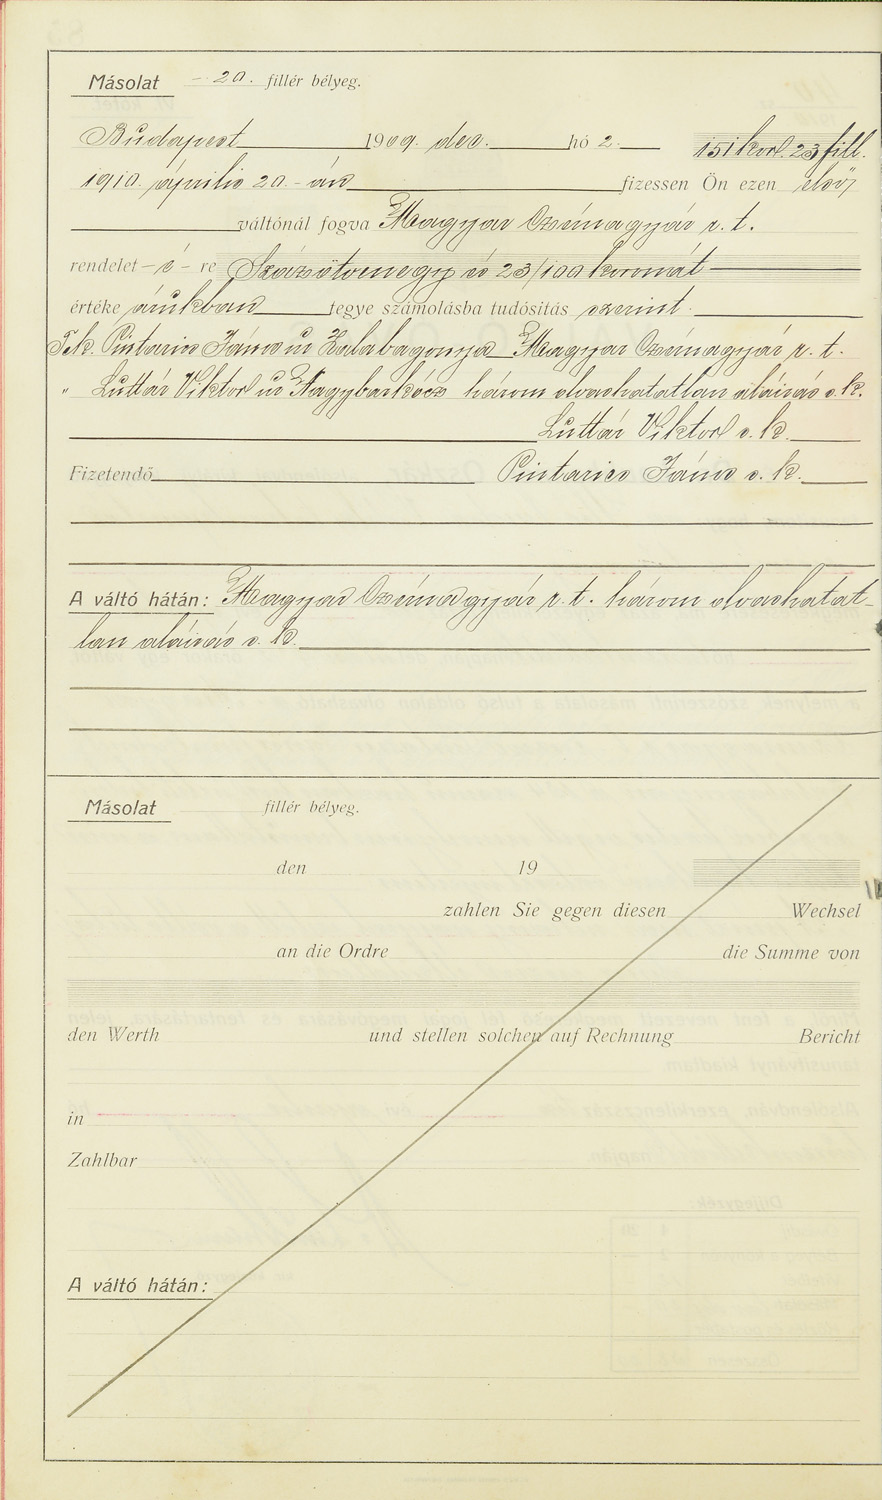 Másolat - 20. fillér bélyeg.
Budapest 1909. dec. hó 2. 151 kor. 23 fill.
1910. április 20.-án fizessen Ön ezen első
váltónál fogva Magyar Czérnagyár r. t.
rendelet-é-re Százötvenegy és 23/100 koronát
értéke árukban tegye számolásba tudósitás szerint.
Tek. Pintarics János ur Zalabagonya Magyar Czérnagyár r. t.
" Luttár Viktor ur Nagybarkócz három olvashatatlan aláirás s. k.
Luttár Viktor s. k.
Fizetendő Pintarics János s. k.
A váltó hátán: Magyar Czérnagyár r. t. három olvashatat-
lan aláirás s. k.
Másolat fillér bélyeg.
den 19
zahlen Sie gegen diesen Wechsel
an die Ordre die Summe von
den Werth und stellen solchen auf Rechnung Bericht
in
Zahlbar
A váltó hátán: